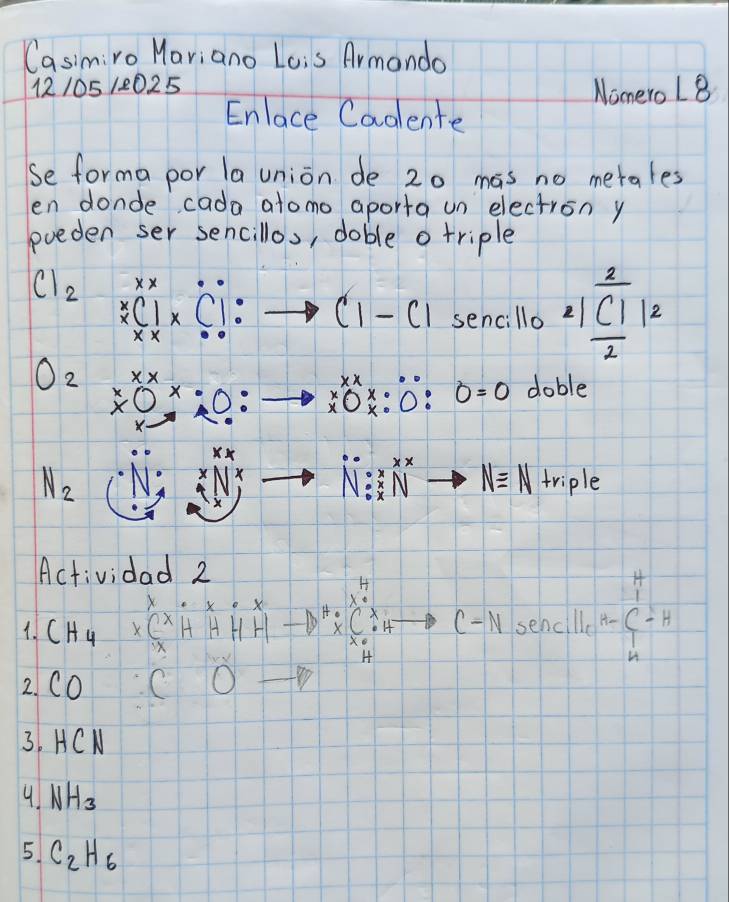 Casimiro Mariano Luis Armando
12/05/2025
Número L 8
Enlace Cadente
Se forma por la unión de 2 o más no metales
en donde cada atomo aporta un electrón y
pueden ser sencillos, doble o triple
Cl2 Cl x Cl → Cl - Cl sencillo 2|Cl|2
O2 O O → O O O=O doble
N2 N N → N N → N≡N triple
Actividad 2
1. CH4 C H H H H → H C H H H → C-N sencillo H-C-H H H
2. CO C O →
3. HCN
4. NH3
5. C2H6